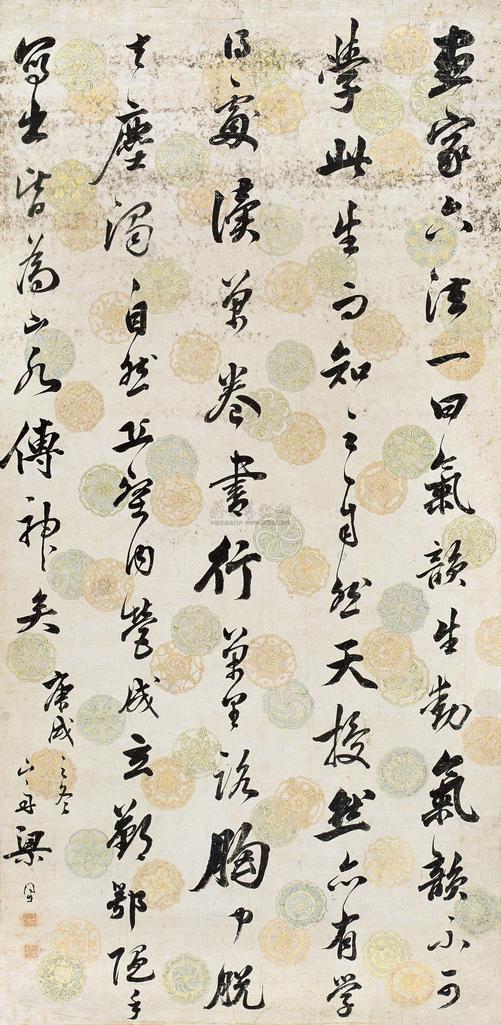 畫家六法一曰氣韻生動氣韻不可
學此生而知之自然天授然亦有学
得處讀萬卷書行萬里路胸中脱
去塵濁自然丘壑内營成立鄞鄂随手
寫出皆為山水傳神矣
庚戌之冬
山舟梁同書